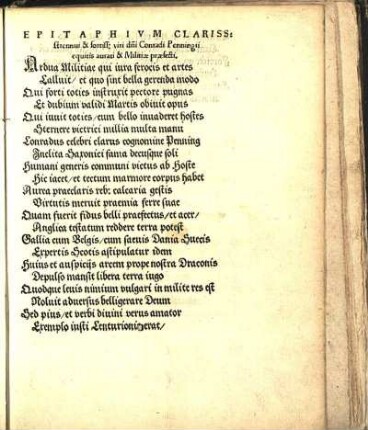 EPITAPHIVM CLARISS:
strennui & fortiss; viri dñi Conradi Penningii
equitis aurati & Militiæ præfecti.
Ardua Militiae qui iura ferocis et artes
Calluit/ et quo sint bella gerenda modo
Qui forti toties instruxit pectore pugnas
Et dubium validi Martis obiuit opus
Qui iuuit toties/ cum bello inuaderet hostes
Sternere victrici millia multa manu
Conradus celebri clarus cognomine Penning
Inclita Saxonici fama decusque soli
Humani generis communi victus ab Hoste
Hic iacet/ et tectum marmore corpus habet
Aurea praeclaris reb; calcaria gestis
Virtutis meruit praemia ferre suae
Quam fuerit fidus belli praefectus/ et acer/
Anglica testatum reddere terra potest
Gallia cum Belgis/ cum saeuis Dania Suecis
Expertis Scotis astipulatur idem
Huius et auspicijs arcem prope nostra Draconis
Depulso mansit libera terra iugo
Quodque leuis nimium vulgari in milite res est
Noluit aduersus belligerare Deum
Sed pius/ et verbi diuini verus amator
Exemplo iusti Centurionis erat/